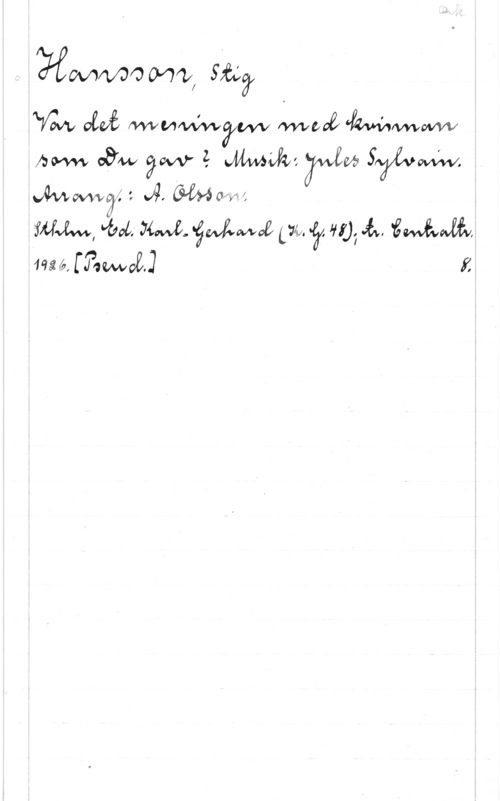 Ork
Hansson, Stig
Var det meningen med kvinnan
som Du gav? Musik: Jules Sylvain.
Arrang.: A. Olsson.
Sthlm, Ed. Karl-Gerhard (K. G. 48); tr. Centraltr.
1926. [Pseud.] 8.